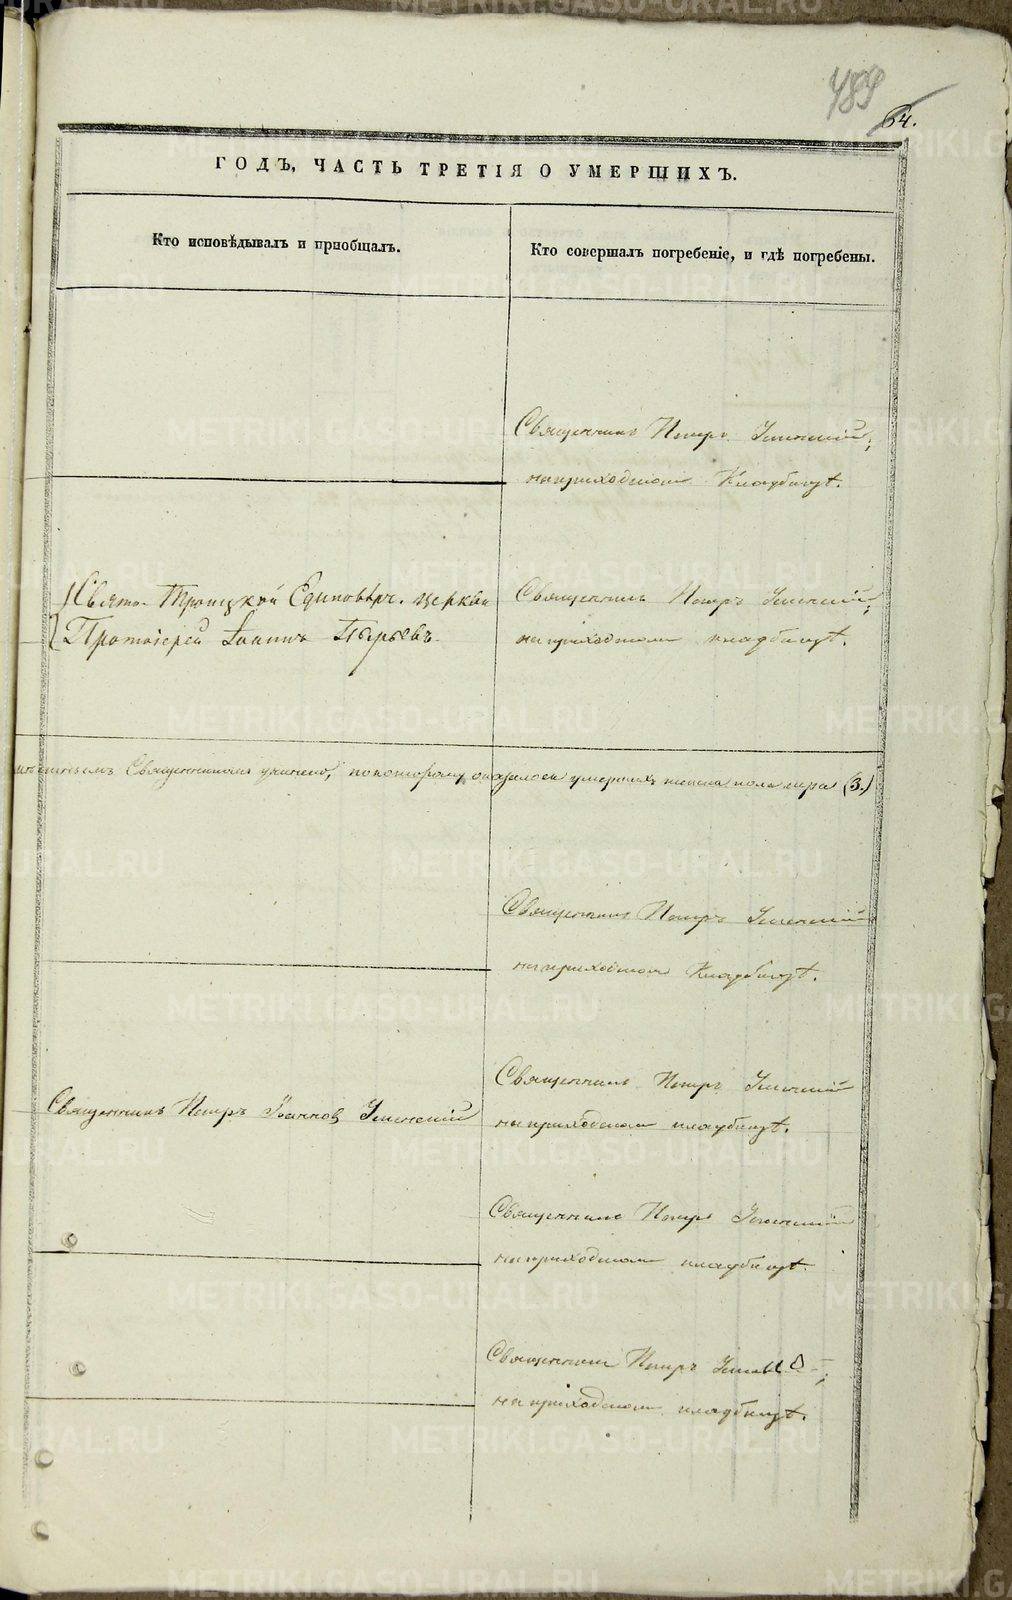 489
64.
ГОДЪ, ЧАСТЬ ТРЕТІЯ О УМЕРШИХЪ.
Кто исповѣдывалъ и пріобщалъ.
Кто совершалъ погребеніе, и гдѣ погребены.
Священникъ Петръ
на приходскомъ Кладбищѣ.
Свято-Троицкой Единовѣрч. церкви
Протоіерей Іоаннъ Пырьевъ
Священникъ Петръ
на приходскомъ кладбищѣ.
Священникомъ учинено, по которому оказалось умершихъ женска пола мира (3.)
Священникъ Петръ
на приходскомъ Кладбищѣ.
Священникъ Петръ Іоанновъ
Священникъ Петръ
на приходскомъ кладбищѣ.
Священникъ Петръ
на приходскомъ кладбищѣ.
Священникъ Петръ
на приходскомъ кладбищѣ.
METRIKI.GASO-URAL.RU